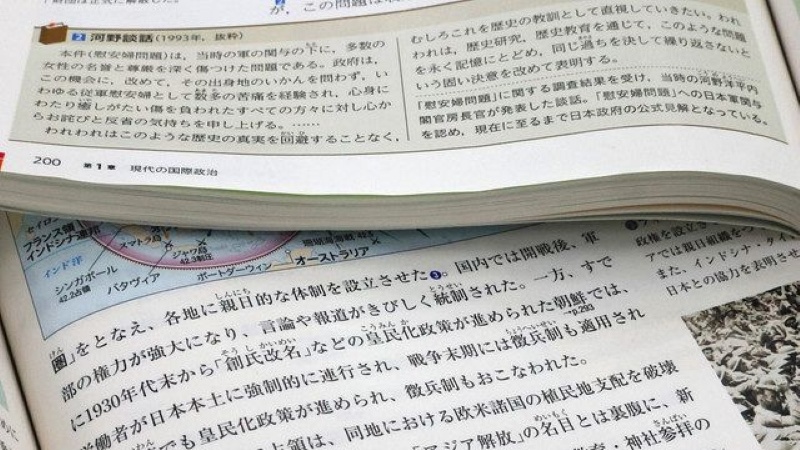 が、この問題は
2 河野談話 (1993年, 抜粋)
本件(慰安婦問題)は、当時の軍の関与の下に、多数の
女性の名誉と尊厳を深く傷つけた問題である。政府は、
この機会に、改めて、その出身地のいかんを問わず、い
わゆる従軍慰安婦として数多の苦痛を経験され、心身に
わたり癒しがたい傷を負われたすべての方々に対し心か
らお詫びと反省の気持ちを申し上げる。……
われわれはこのような歴史の真実を回避することなく、
むしろこれを歴史の教訓として直視していきたい。われ
われは、歴史研究、歴史教育を通じて、このような問題
を永く記憶にとどめ、同じ過ちを決して繰り返さないと
いう固い決意を改めて表明する。
「慰安婦問題」に関する調査結果を受け、当時の河野洋平内
閣官房長官が発表した談話。「慰安婦問題」への日本軍関与
を認め、現在に至るまで日本政府の公式見解となっている。
200 第1章 現代の国際政治
フランス領
インドシナ連邦
スマトラ島
ジャワ島
インド洋
シンガポール
42.2占領
バタヴィア
ポートダーウィン
オーストラリア
圏」をとなえ、各地に親日的な体制を設立させた3。国内では開戦後、軍
部の権力が強大になり、言論や報道がきびしく統制された。一方、すで
に1930年代末から「創氏改名」などの皇民化政策が進められた朝鮮では、
p.293
労働者が日本本土に強制的に連行され、戦争末期には徴兵制も適用され
でも皇民化政策が進められ、徴兵制もおこなわれた。
上領は、同地における欧米諸国の植民地支配を破壊
「アジア解放」の名目とは裏腹に、新
教育・神社参拝の
政権を設立さ
アでは親日組織をつ
また、インドシナ・タイ
日本との協力を表明させ